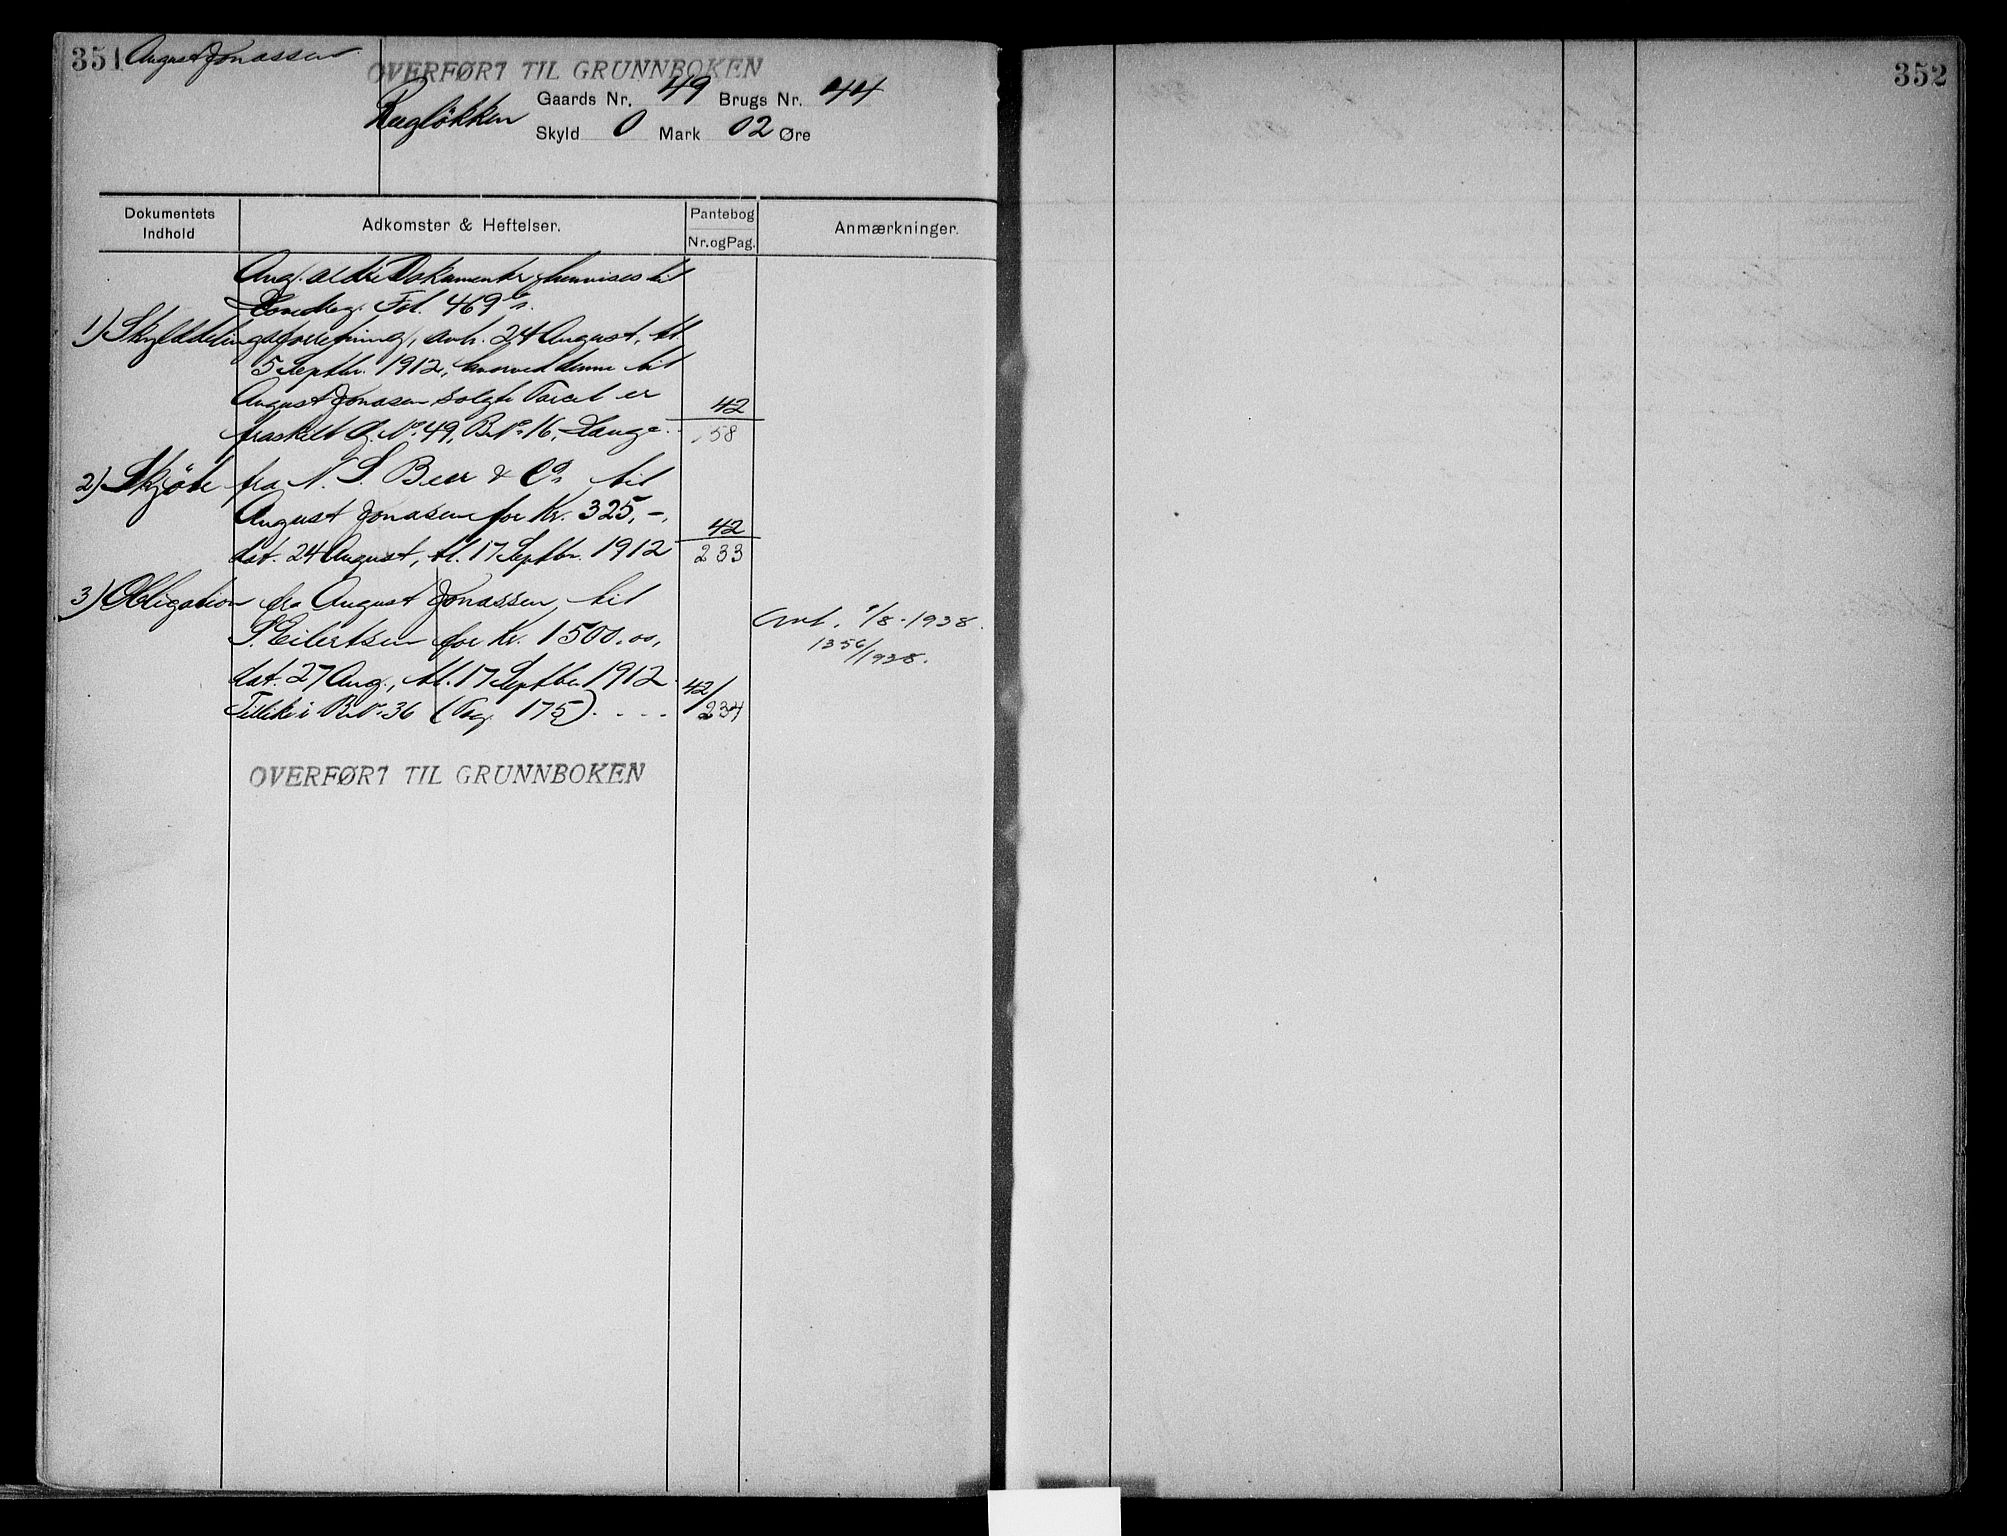 351 August Jonassen
OVERFØRT TIL GRUNNBOKEN
Rugløkken
Gaards Nr. 49 Brugs Nr. 44
Skyld 0 Mark 02 Øre
Dokumentets Indhold
Adkomster & Heftelser.
Pantebog
Nr. og Pag.
Anmærkninger.
Ang. ældre Dokumenter henvises til
Fol. 469
1) Skylddelingsforretning, avh. 24 August, tl.
5 Septbr. 1912, hvorved denne til
August Jonasen solgte Parcel er 42
fraskilt G. No. 49, B. No. 16, Lauge. 58
2) Skjøte fra N. S. Beer & Co. til
August Jonasen for Kr. 325,-, 42
dat. 24 August, tl. 17 Septbr. 1912 233
3) Obligation fra August Jonassen til
S. Eilertsen for Kr. 1500,00, Avl. 9/8-1938.
1356/1938.
dat. 27 Aug., tl. 17 Septbr. 1912
Tillike i B.No. 36 (Pag. 175) . . . . 42/234
OVERFØRT TIL GRUNNBOKEN
352